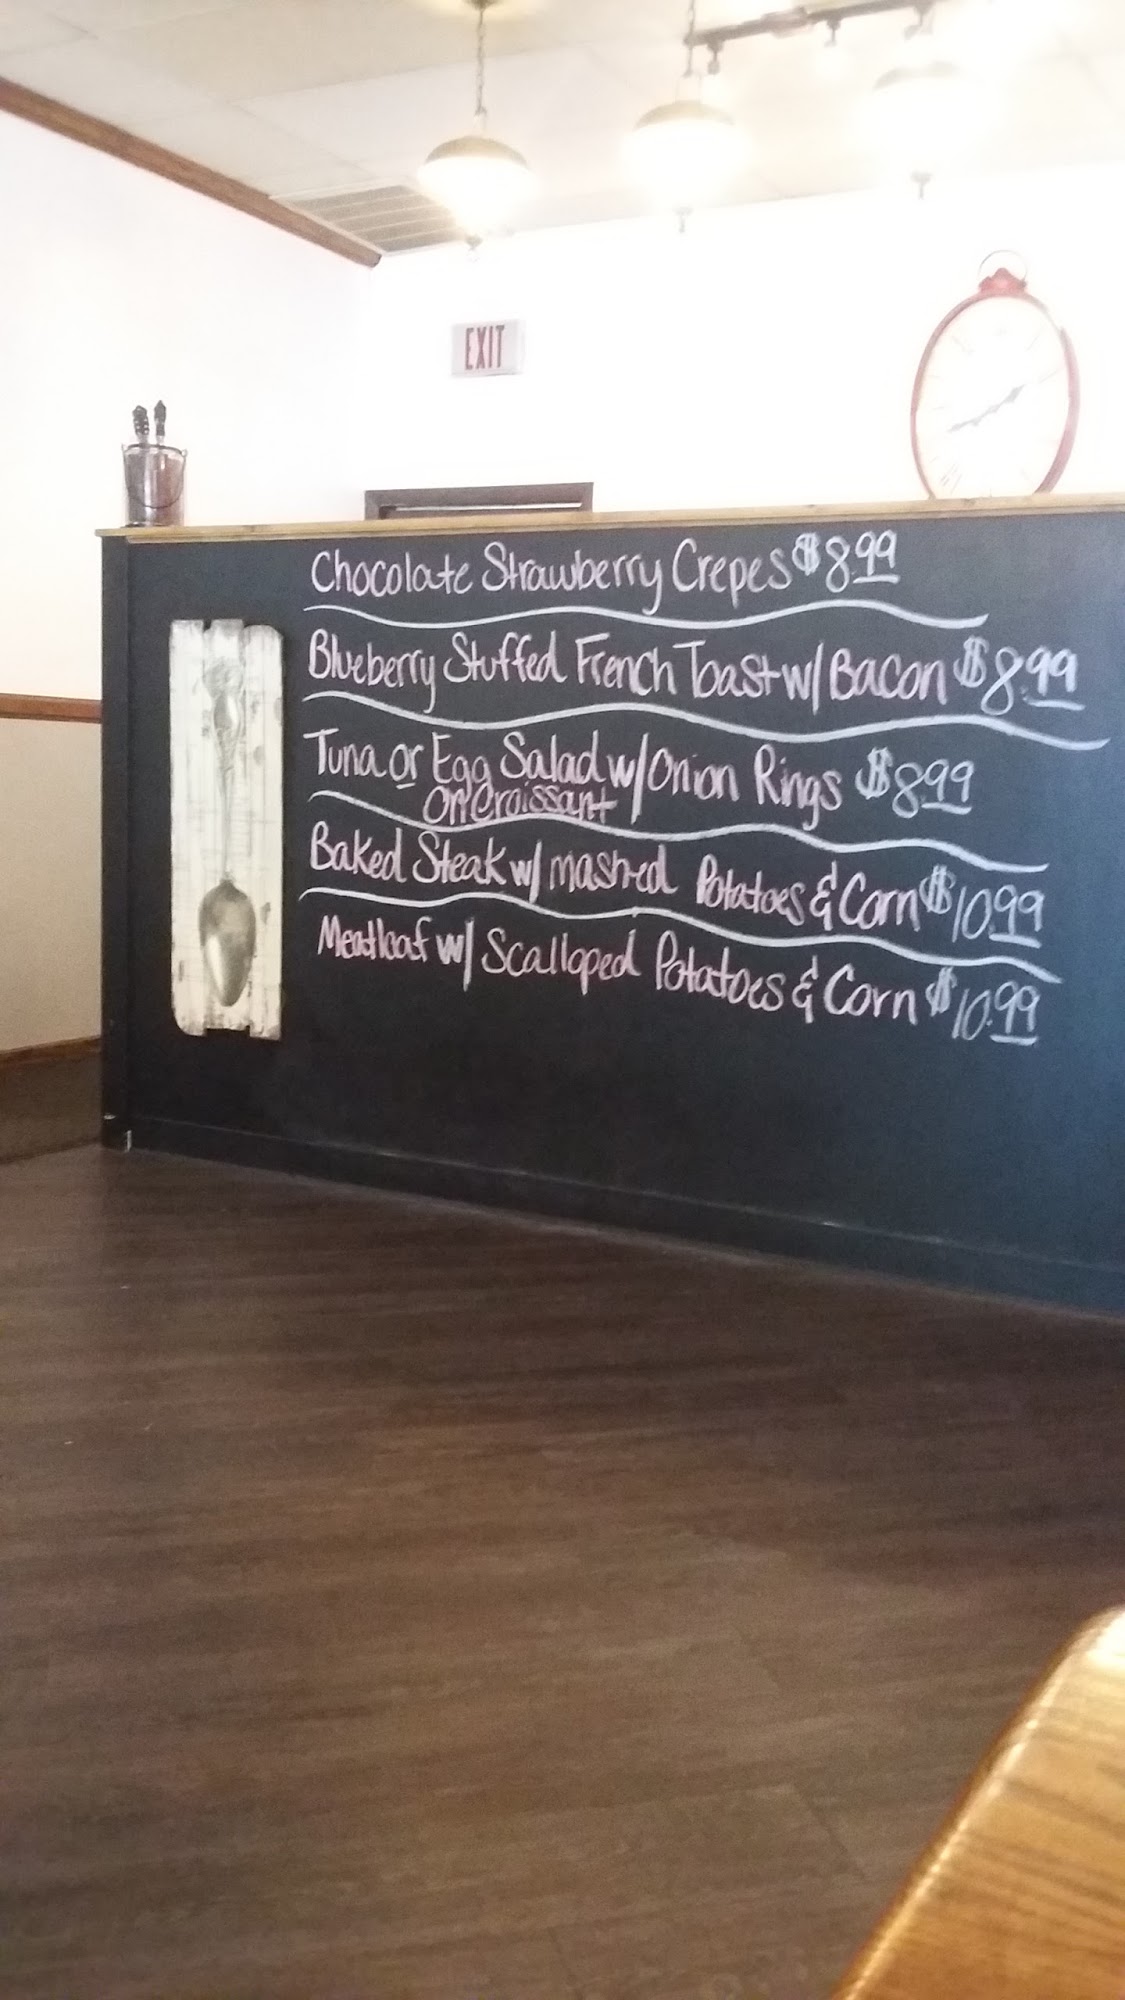 EXIT
Chocolate Strawberry Crepes $8.99
Blueberry Stuffed French Toast w/ Bacon $8.99
Tuna or Egg Salad w/ Onion Rings $8.99
On Croissant
Baked Steak w/ mashed Potatoes & Corn $10.99
Meatloaf w/ Scalloped Potatoes & Corn $10.99